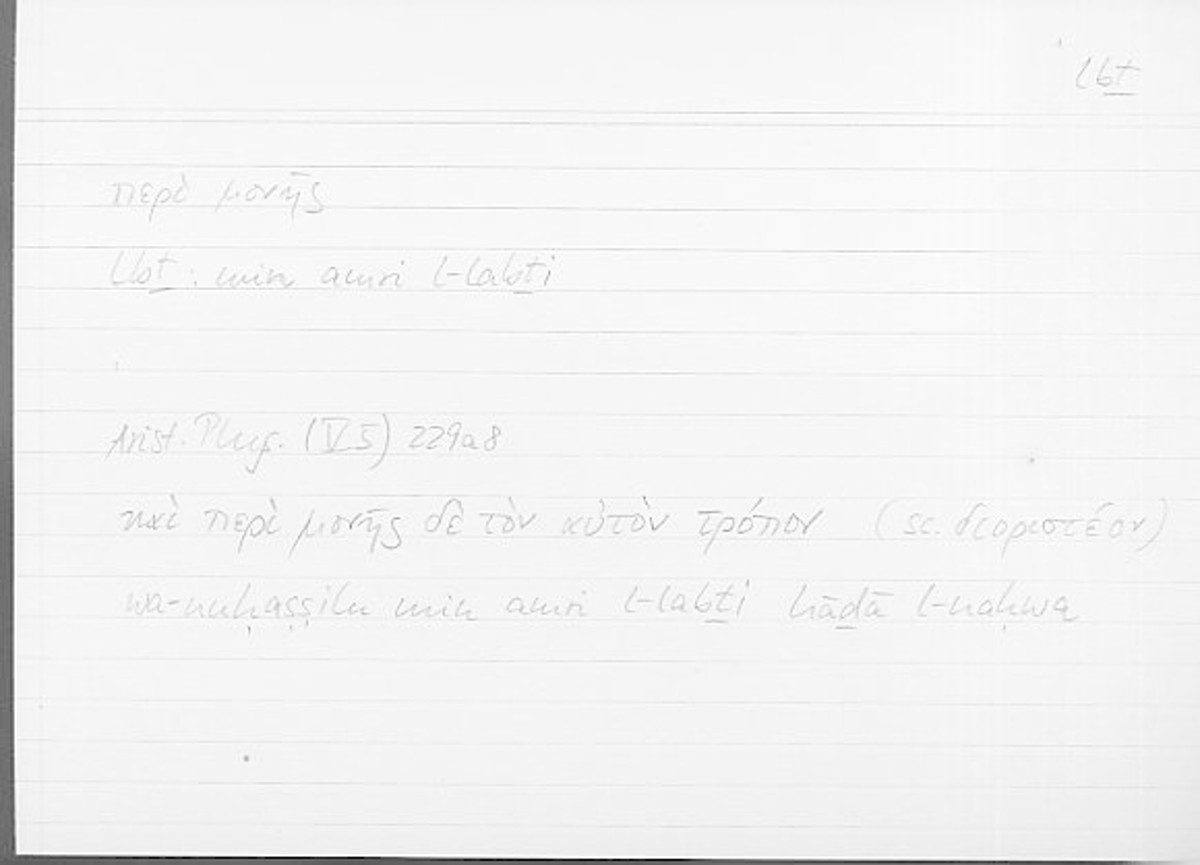 lbṯ
περὶ μονῆς
lbṯ : min amri l-labṯi
Arist. Phys. (V 5) 229a8
καὶ περὶ μονῆς δὲ τὸν αὐτὸν τρόπον (sc. διοριστέον)
wa-nuḥaṣṣilu min amri l-labṯi hāḏā l-naḥwa